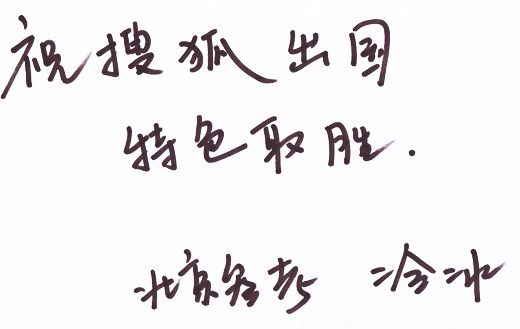 祝搜狐出国
特色取胜.
北京备考 冷冰